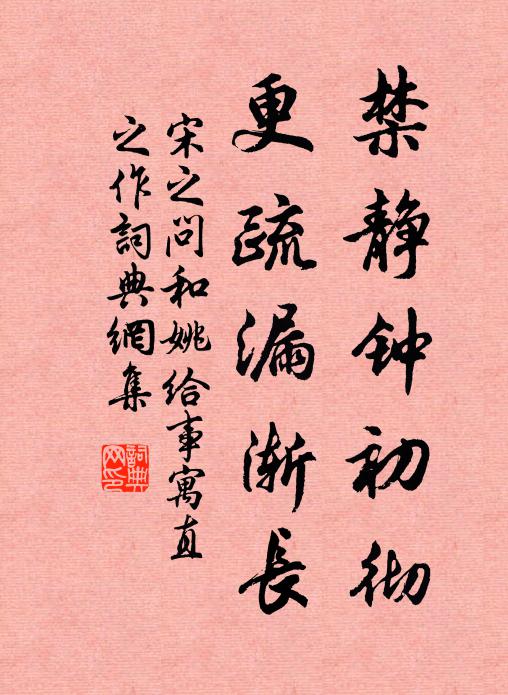 禁静钟初彻
更疏漏渐長
宋之问和姚给事寓直
之作詞典網集
詞典
网印